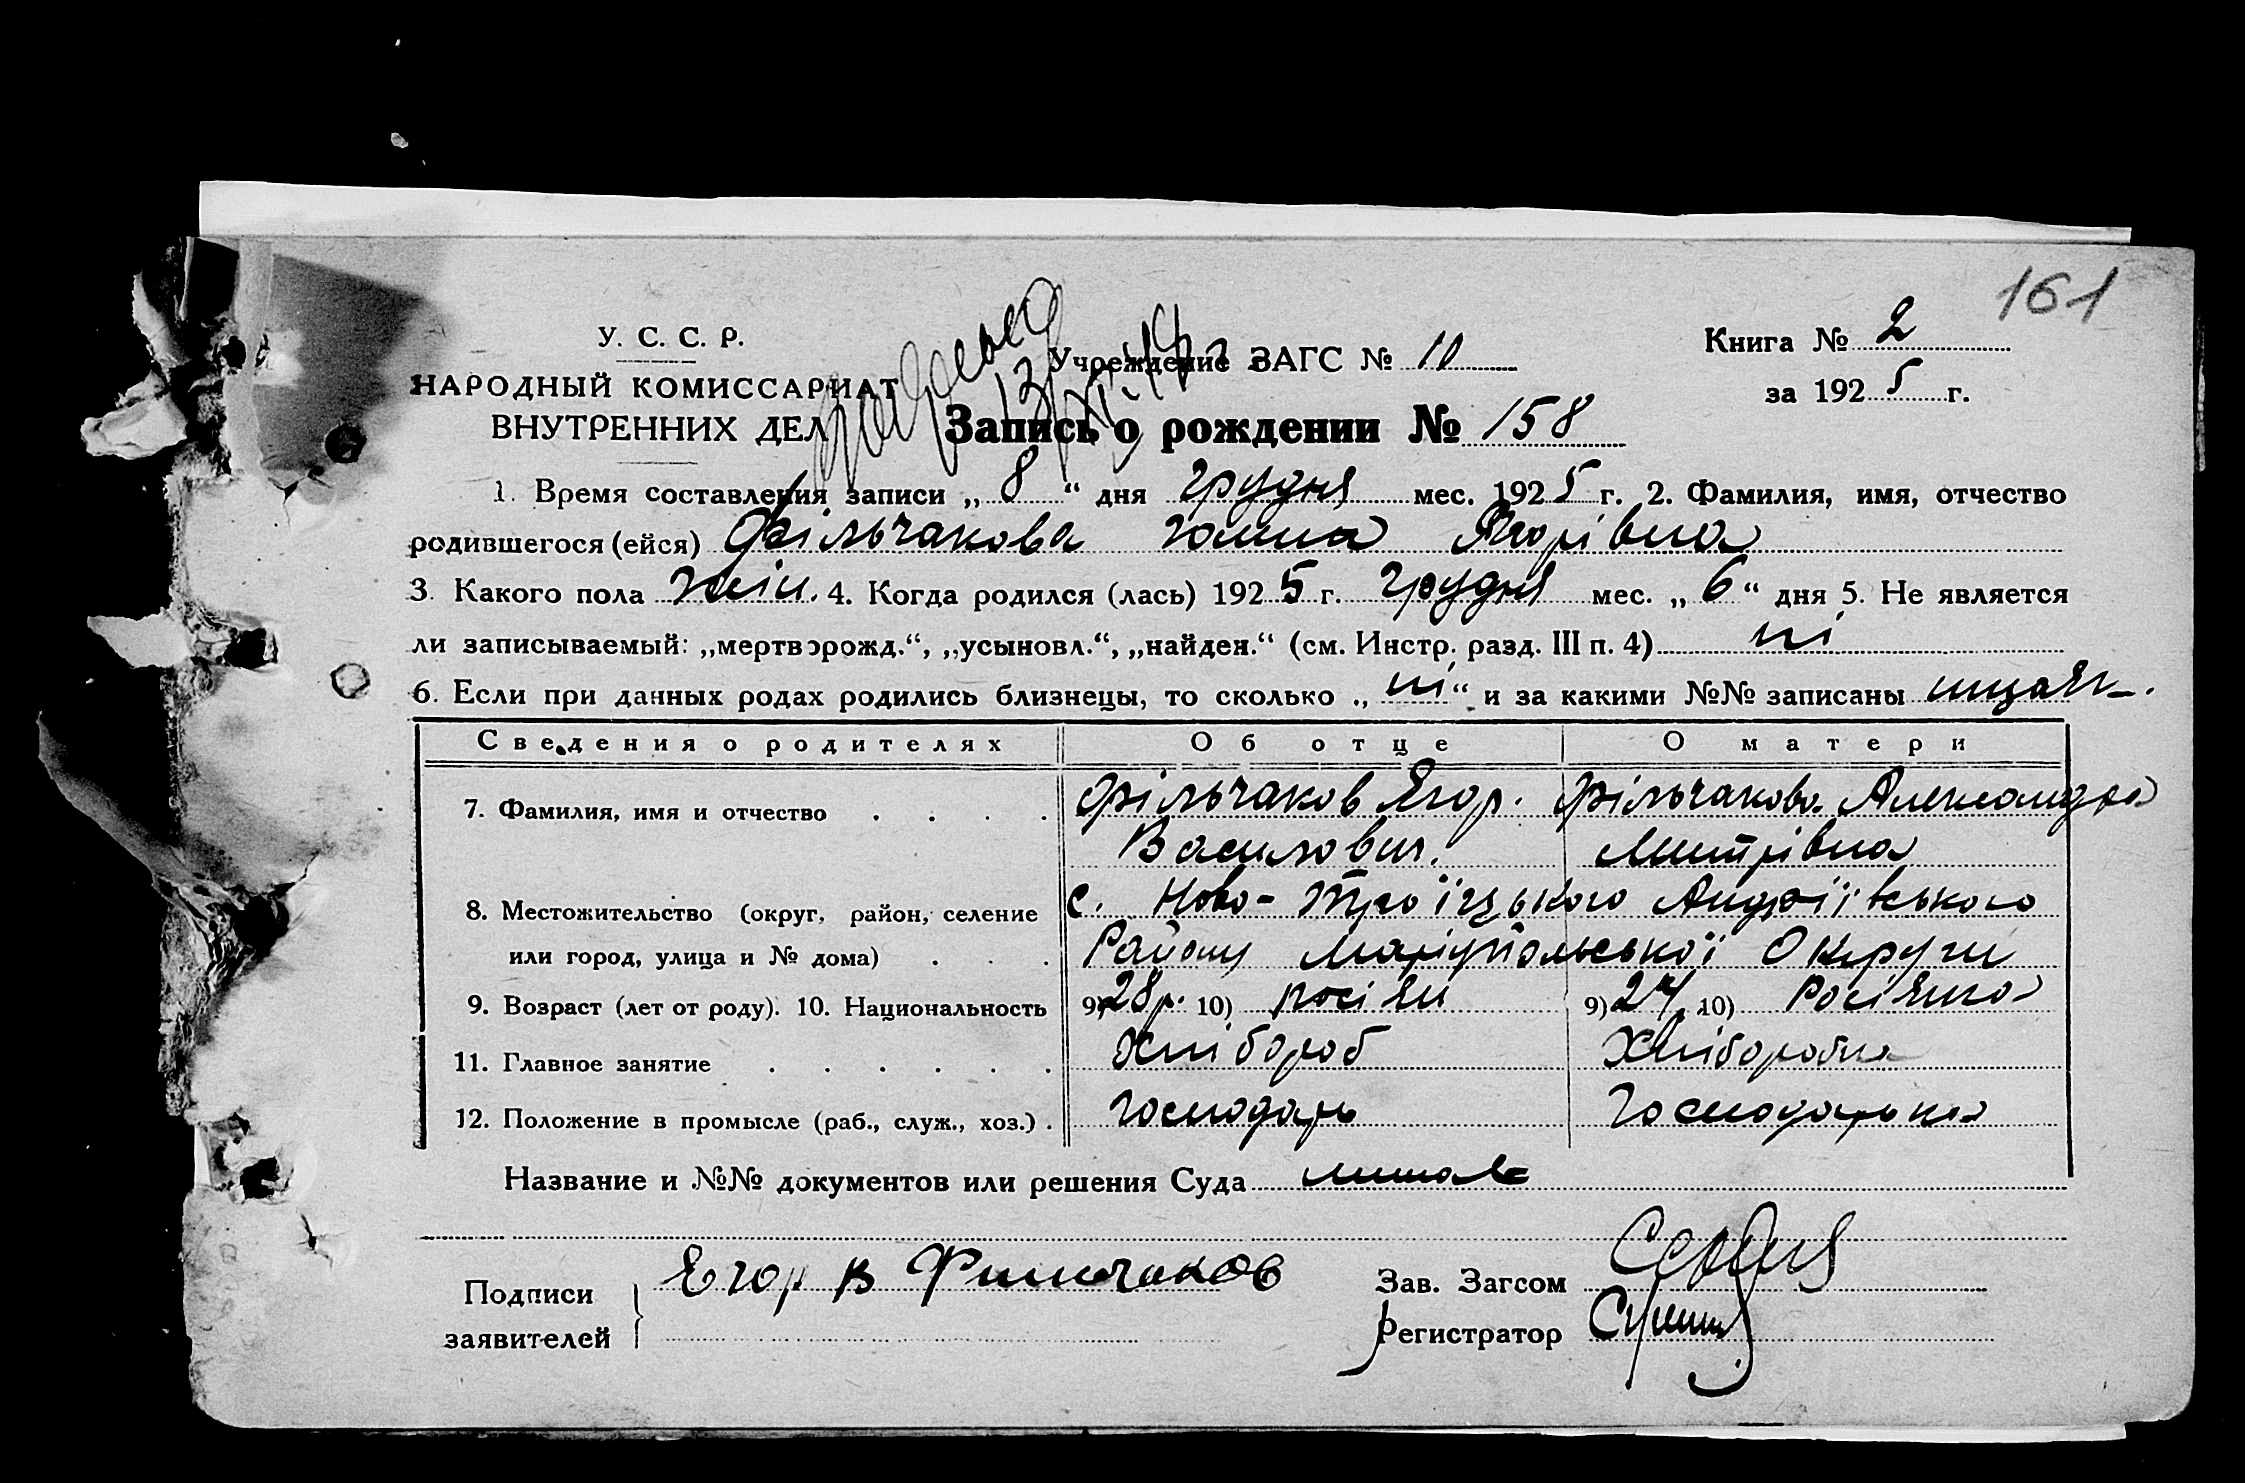 161
У. С. С. Р.
Учреждение ЗАГС № 10
Книга № 2
НАРОДНЫЙ КОМИССАРИАТ
за 1925 г.
ВНУТРЕННИХ ДЕЛ
Запись о рождении № 158
1. Время составления записи „8“ дня грудня мес. 1925 г. 2. Фамилия, имя, отчество
родившегося (ейся) Фільчакова Ягорівна
3. Какого пола жін. 4. Когда родился (лась) 1925 г. грудня мес. „6“ дня 5. Не является
ли записываемый: „мертворожд.“, „усыновл.“, „найден.“ (см. Инстр. разд. III п. 4) ні
6. Если при данных родах родились близнецы, то сколько „ні“ и за какими №№ записаны
Сведения о родителях Об отце О матери
7. Фамилия, имя и отчество . . . . Фільчаков Ягор. Фільчакова Александра
Василович. Митрівна
8. Местожительство (округ, район, селение с. Ново-Троїцького Андріївського
или город, улица и № дома) . . . Району Маріупольської Округи
9. Возраст (лет от роду). 10. Национальность 9) 28 р. 10) росіян 9) 24 10) Росіянка
11. Главное занятие . . . . . . Хлібороб Хліборобка
12. Положение в промысле (раб., служ., хоз.) . господарь Господарька
Название и №№ документов или решения Суда
Подписи
заявителей
Егор В Филчаков
Зав. Загсом
Регистратор